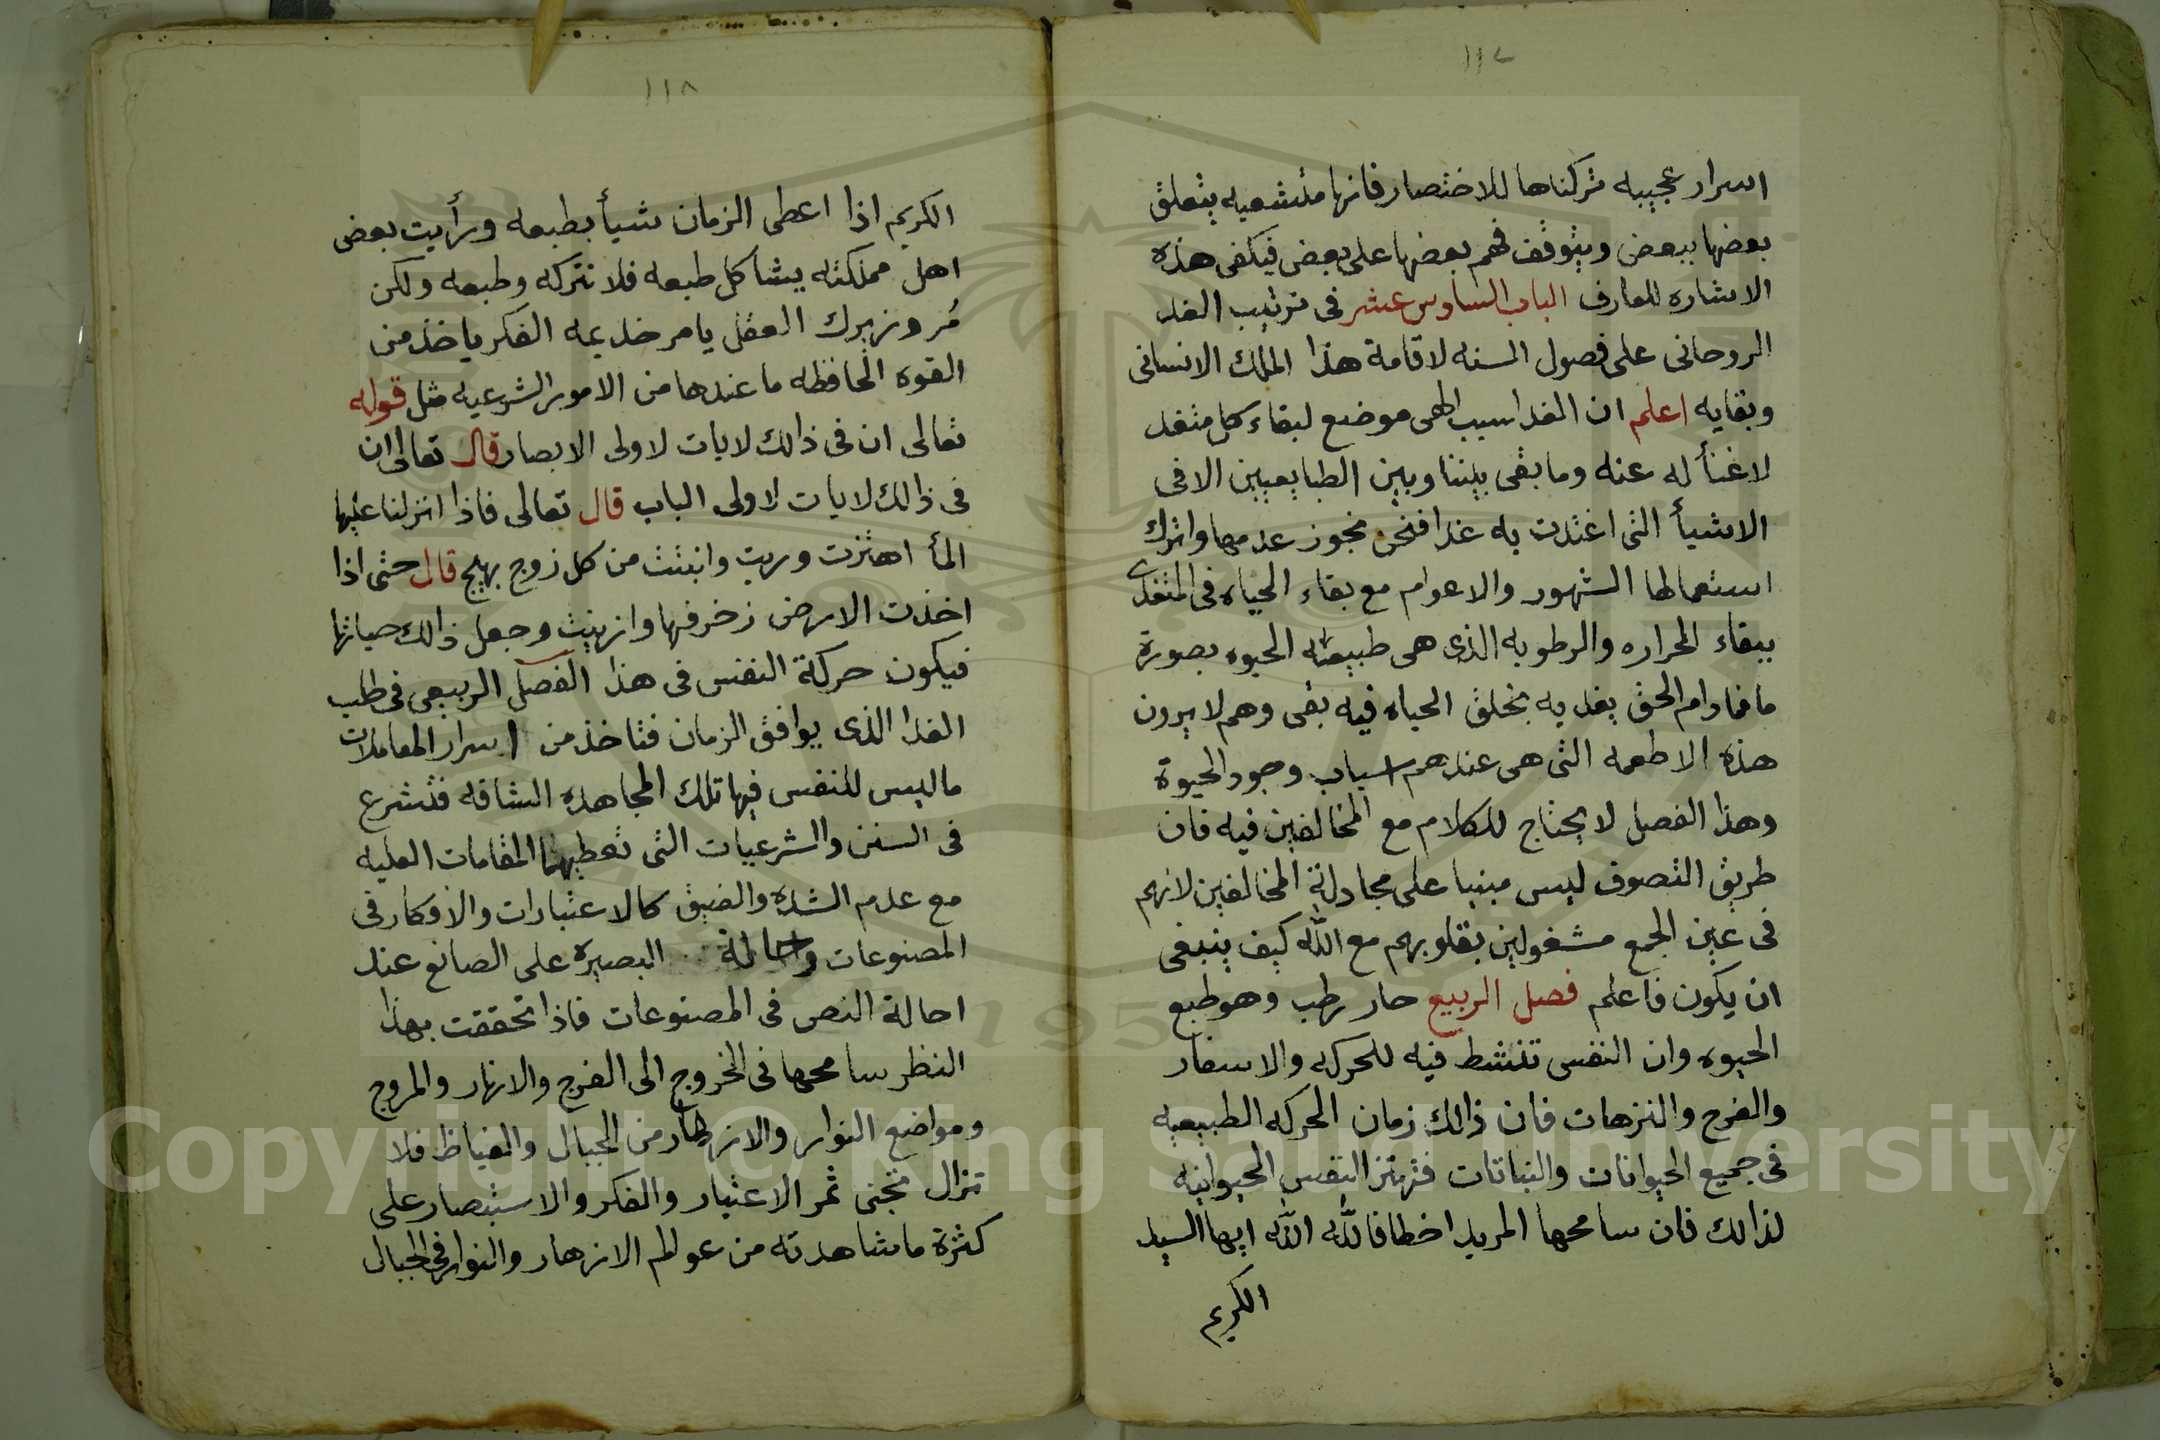 ١١٧
اسرار عجيبه تركناها للاختصار فانها متشعبه يتعلق
بعضها ببعض ويتوقف فهم بعضها على بعض فيكفى هذه
الاشاره للعارف الباب السادس عشر فى ترتيب الغذ
الروحانى على فصول السنه لاقامة هذا الملك الانسانى
وبقايه اعلم ان الغذا سبب الهى موضع لبقاء كل متغذ
لا غنأ له عنه وما بقى بيننا وبين الطبايعيين الا فى
الاشيأ التى اغتذت به غذا فنحن نجوز عدمها واترك
استعمالها الشهور والاعوام مع بقاء الحياه فى المتغذى
ببقاء الحراره والرطوبه الذى هى طبيعته الحيوه بصورة
ما فما دام الحق يغذيه بخلق الحياه فيه بقى وهم لا يرون
هذه الاطعمه التى هى عندهم اسباب وجود الحيوة
وهذا الفصل لا يحتاج للكلام مع المخالفين فيه فان
طريق التصوف ليس مبنيا على مجادلة المخالفين لانهم
فى عين الجمع مشغولين بقلوبهم مع الله كيف ينبغى
ان يكون فاعلم فصل الربيع حار رطب وهو طبع
الحيوه وان النفس تنشط فيه للحركه والاسفار
والفرج والنزهات فان ذالك زمان الحركه الطبيعيه
فى جميع الحيوانات والنباتات فتهتز النفس الحيوانيه
لذالك فان سامحها المريد اخطا فالله الله ايها السيد
الكريم
١١٨
الكريم اذا اعطى الزمان شيأ بطبعه ورأيت بعض
اهل مملكته يشاكل طبعه فلا تتركه وطبعه ولكن
مُر وزيرك العقل يامر خديمه الفكر ياخذ من
القوه الحافظه ما عندها من الامور الشرعيه مثل قوله
تعالى ان فى ذالك لايات لاولى الابصار قال تعالى ان
فى ذالك لايات لاولى الباب قال تعالى فاذا انزلنا عليها
المأ اهتزت وربت وانبتت من كل زوج بهيج قال حتى اذا
اخذت الارض زخرفها وازينت وجعل ذالك حياتها
فيكون حركة النفس فى هذا الفصل الربيعى فى طلب
الغذا الذى يوافق الزمان فتاخذ من اسرار المعاملات
ما ليس للنفس فيها تلك المجاهده الشاقه فتشرع
فى السنن والشرعيات التى تعطيها المقامات العليه
مع عدم الشده والضيق كالاعتبارات والافكار فى
المصنوعات واحالة البصيره على الصانع عند
احالة النص فى المصنوعات فاذا تحققت بهذا
النظر سامحها فى الخروج الى الفرج والانهار والمروج
ومواضع النوار والازهار من الجبال والغياظ فلا
تزال تجنى ثمر الاعتبار والفكر والاستبصار على
كثرة ما شاهدته من عوالم الازهار والنوار فى الجبال
Copyright © King Saud University